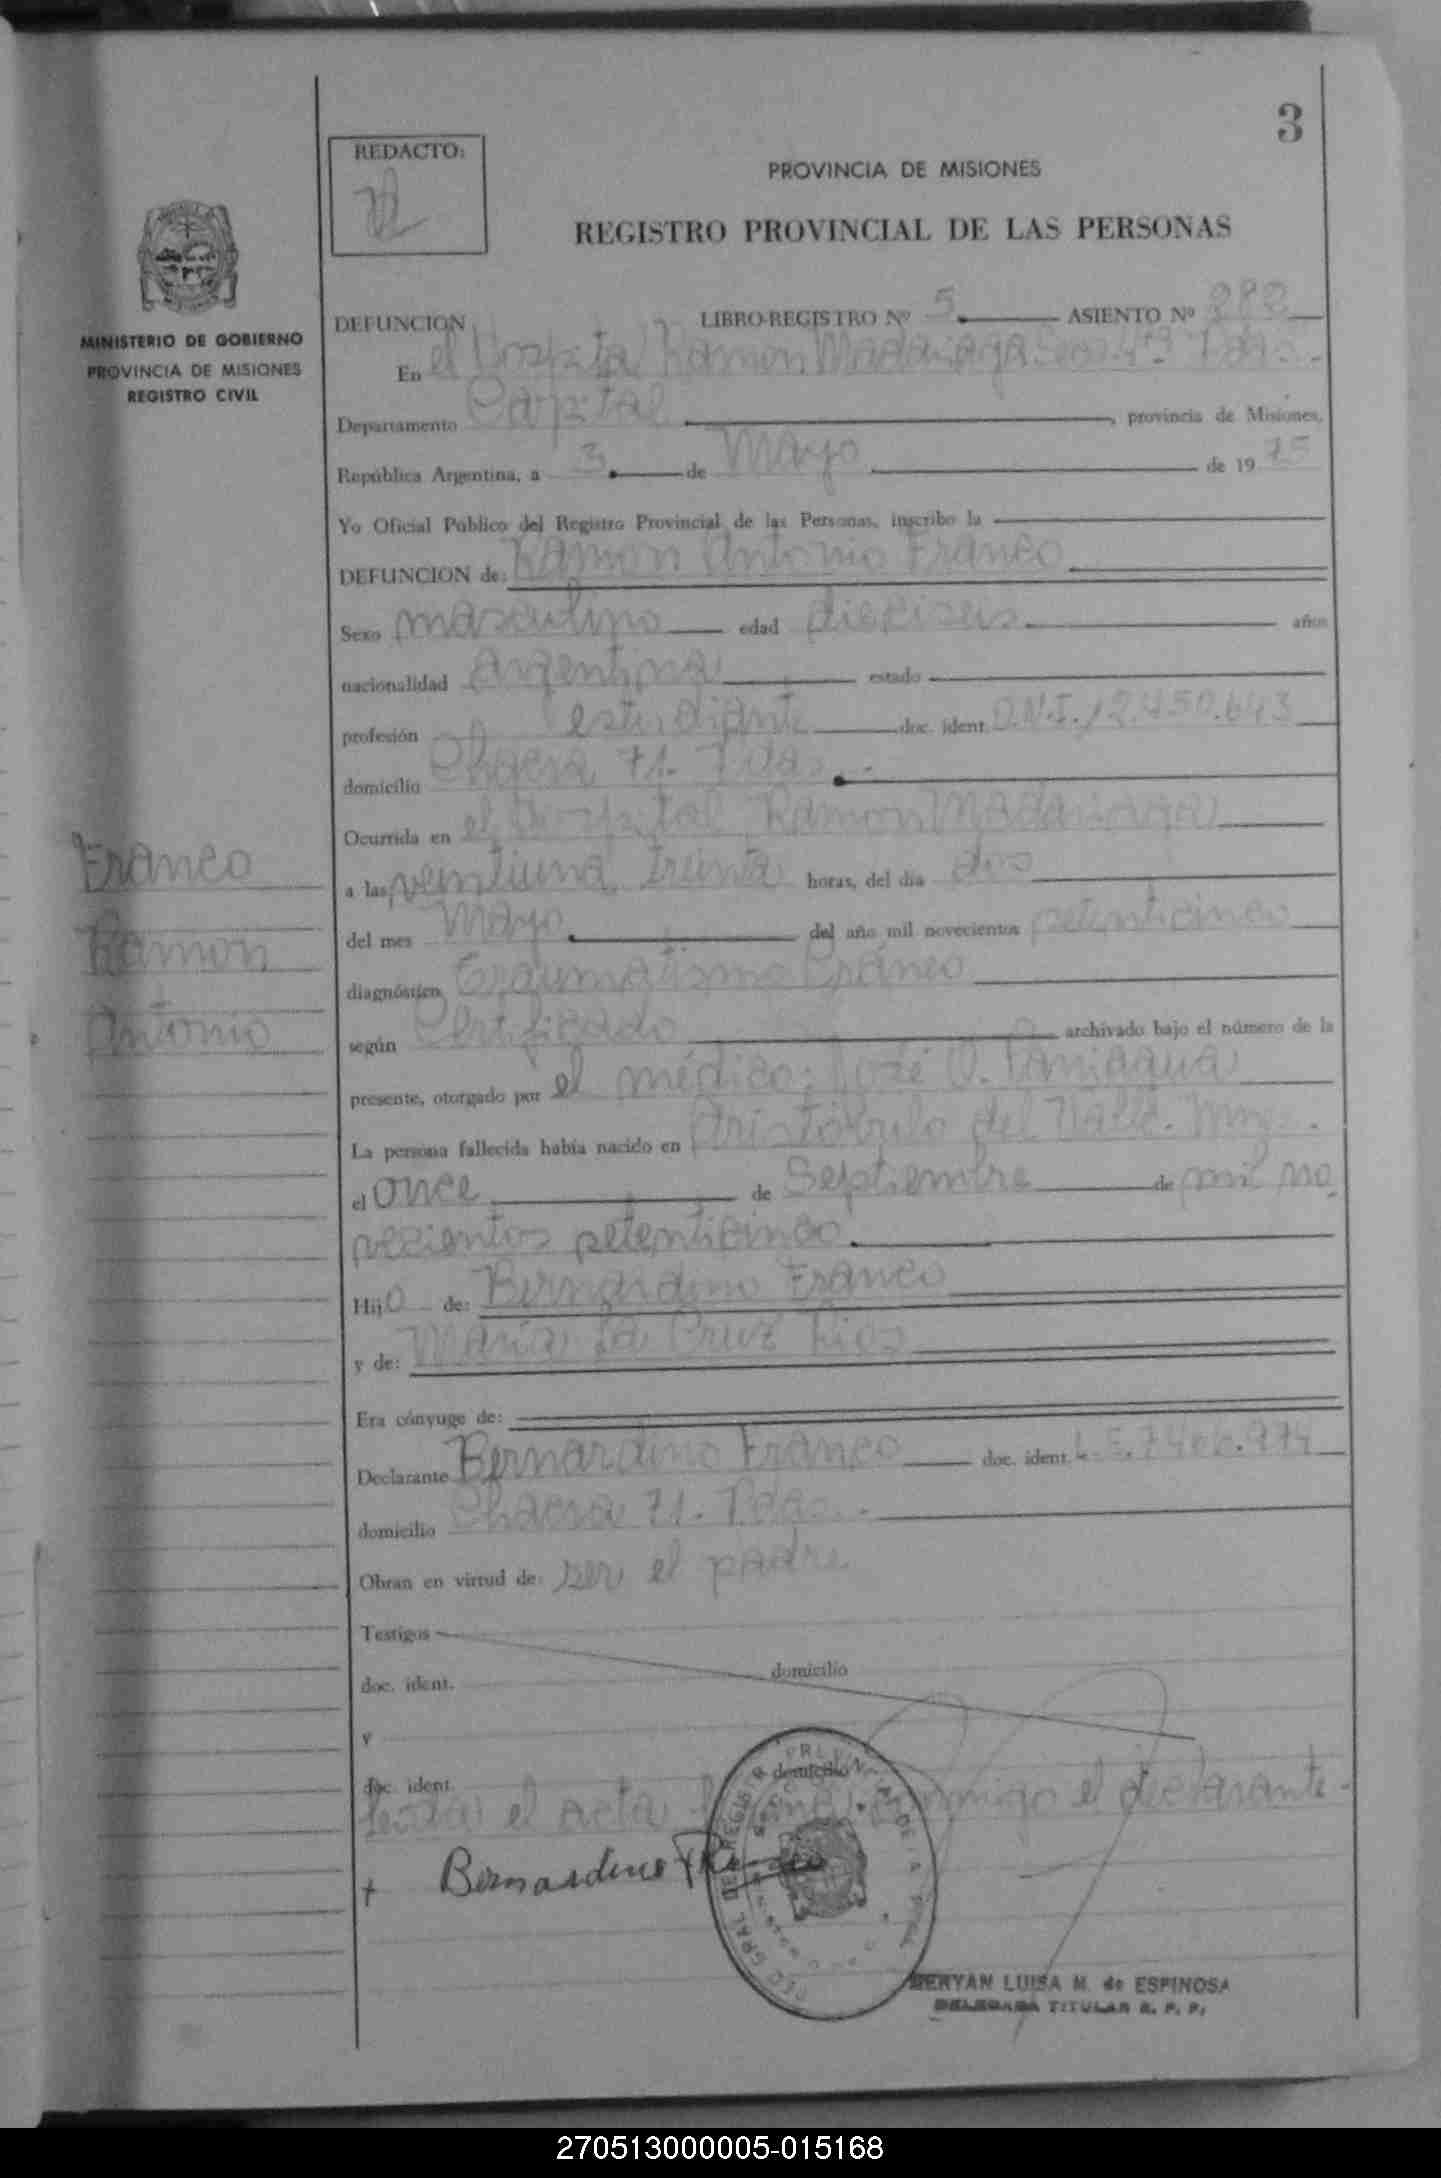 3
REDACTO:
PROVINCIA DE MISIONES
REGISTRO PROVINCIAL DE LAS PERSONAS
MINISTERIO DE GOBIERNO
PROVINCIA DE MISIONES
REGISTRO CIVIL
DEFUNCION LIBRO-REGISTRO Nº 5 ASIENTO Nº 282
En el Hospital Ramon Madariaga Secc. 4ta Pdas.-
Departamento Capital, provincia de Misiones,
República Argentina, a 3 de Mayo de 1975
Yo Oficial Público del Registro Provincial de las Personas, inscribo la
DEFUNCION de: Ramon Antonio Franco
Sexo masculino edad dieciseis años
nacionalidad argentina estado
profesión estudiante doc. ident. D.N.I. 12.450.643
domicilio Chacra 71. Pdas.-
Ocurrida en el Hospital Ramon Madariaga
a las ventiuna treinta horas, del día dos
del mes Mayo del año mil novecientos setenticinco
diagnóstico Traumatismo Cráneo
según Certificado archivado bajo el número de la
presente, otorgado por el médico: José O. Paniagua
La persona fallecida había nacido en Aristóbulo del Valle. Mnes.
el once de Septiembre de mil no
vecientos setenticinco
Hijo de: Bernardino Franco
y de: María La Cruz Rios
Era cónyuge de:
Declarante Bernardino Franco doc. ident. L.E. 7.4 .974
domicilio Chacra 71. Pdas.-
Obran en virtud de: ser el padre
Testigos
doc. ident. domicilio
y
doc. ident. domicilio
Leida el acta firma conmigo el declarante.-
Bernardino Franco
MERYAN LUISA M. de ESPINOSA
DELEGADA TITULAR R. P. P.
Franco
Ramon
Antonio
270513000005-015168